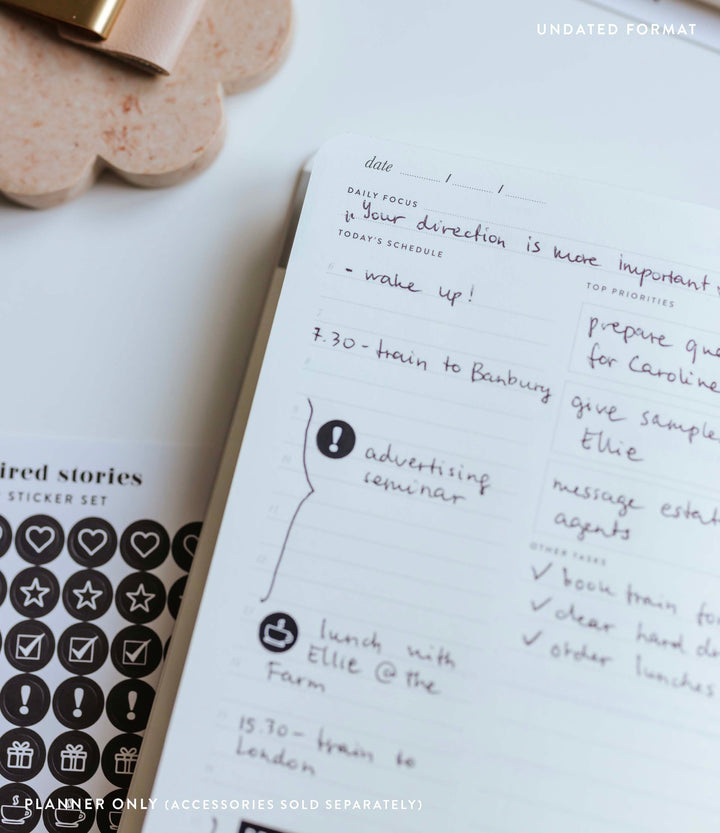 UNDATED FORMAT
date / /
DAILY FOCUS
"Your direction is more important
TODAY'S SCHEDULE
6 - wake up!
7
7.30 - train to Banbury
8
9
10
advertising
seminar
11
12
lunch with
Ellie @ the
Farm
15.30 - train to
London
TOP PRIORITIES
prepare que
for Caroline
give sample
Ellie
message estat
agents
OTHER TASKS
✓ book train for
✓ clear hard dr
✓ order lunches
ired stories
STICKER SET
PLANNER ONLY (ACCESSORIES SOLD SEPARATELY)